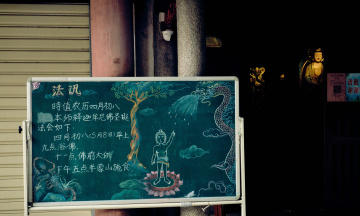 法讯
時值农历四月初八
本師释迦牟尼佛圣诞
法会如下:
四月初八(5月8日)早上
九点:浴佛
十一点:佛前大供
下午五点:蒙山施食